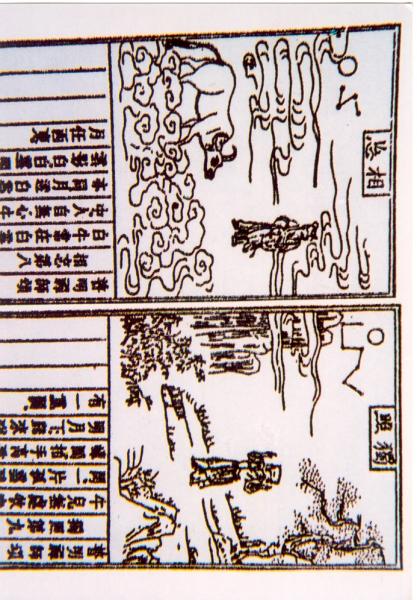 相忘
普明禪師頌
相忘第八
白牛常在白雲
中人自無心牛
亦同月透白雲
雲影白白雲明
月任西東
獨照
普明禪師頌
獨照第九
牛兒無處牧童
閑一片孤雲碧
嶂間拍手高歌
明月下歸來猶
有一重關